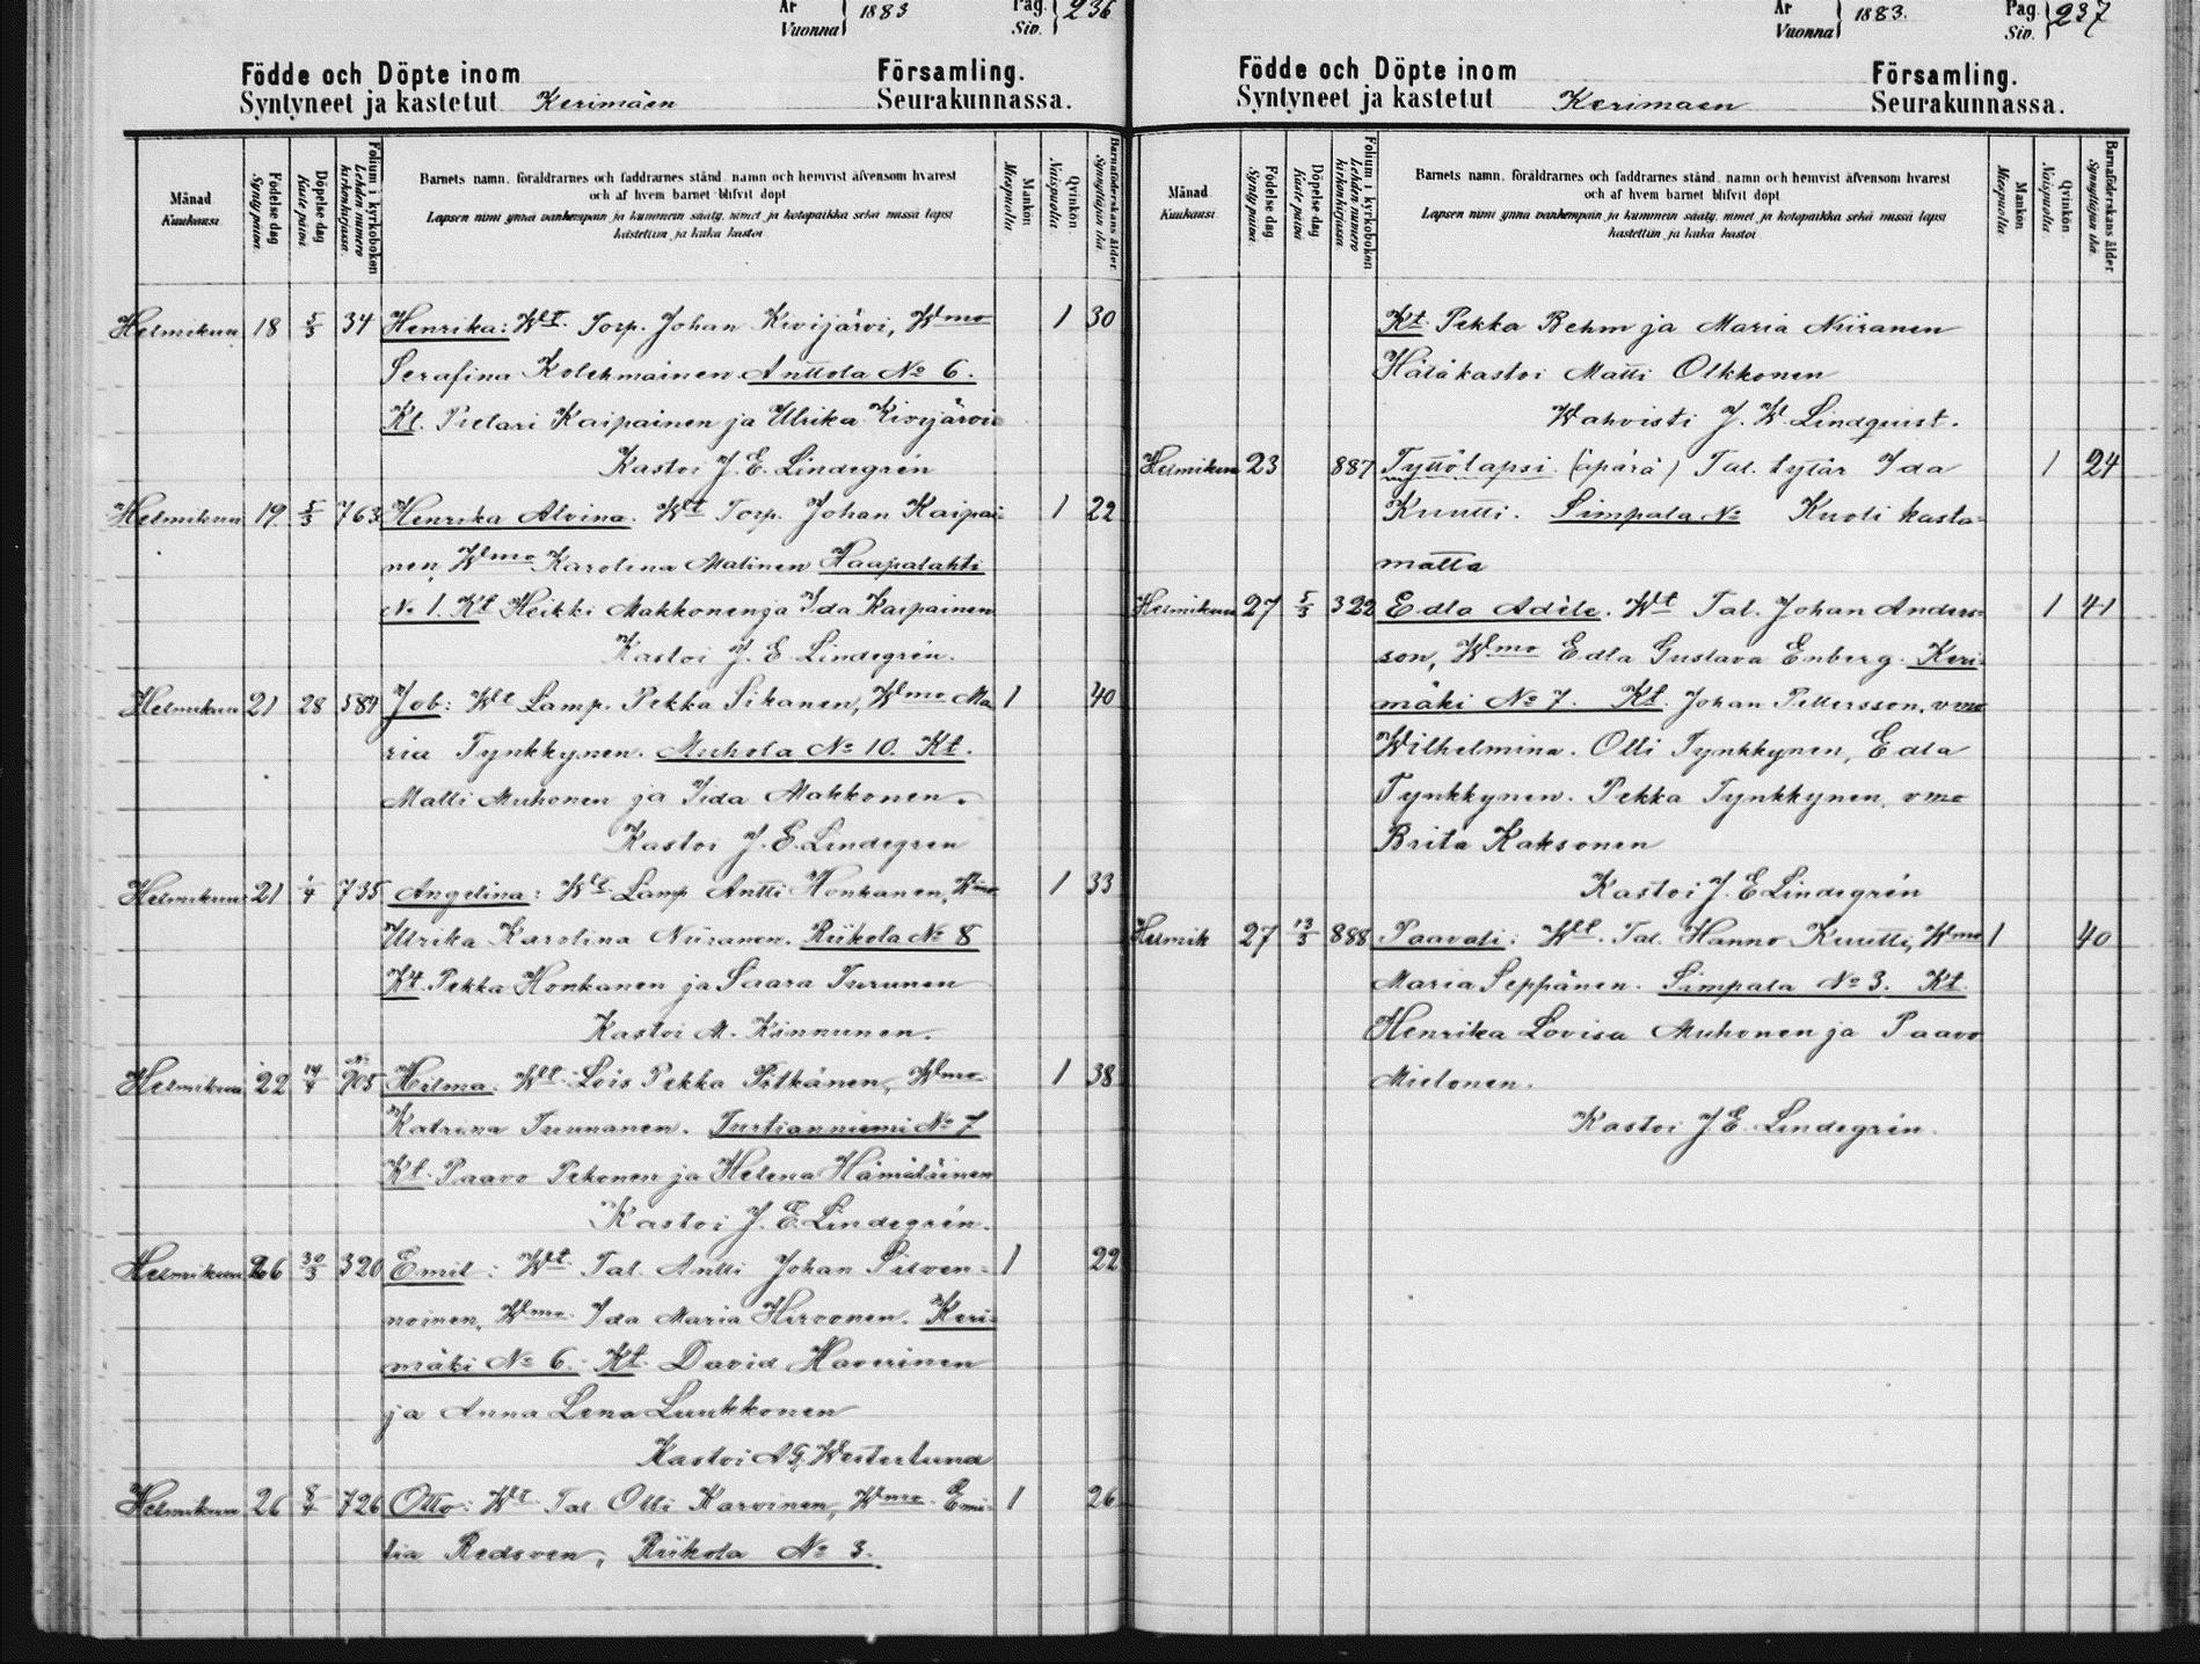 År Vuonna } 1883 Pag. Siv. } 236
Födde och Döpte inom Församling.
Syntyneet ja kastetut Kerimäen Seurakunnassa.
Månad Kuukausi
Födelse dag Synty päivä
Döpelse dag Kaste päivä
Folium i kyrkoboken Lehden numero kirkonkirjassa
Barnets namn, föräldrarnes och faddrarnes stånd, namn och hemvist äfvensom hvarest
och af hvem barnet blifvit döpt
Lapsen nimi ynnä vanhempain ja kummein sääty, nimet ja kotopaikka sekä missä lapsi
kastettiin ja kuka kastoi
Mankön Miespuolia
Qvinkön Naispuolia
Barnaföderskans ålder. Synnyttäjän ikä
Helmikuu 18 5/3 34 Henrika: Wt. Torp. Johan Kivijärvi, Wmo 1 30
Serafina Kolehmainen Anttola No 6.
Kt. Pielari Kaipainen ja Ulrika Kivijärvi
Kastoi J. E. Lindegrén
Helmikuu 19 5/3 763 Henrika Alvina. Wt Torp. Johan Kaipai- 1 22
nen, Wmo Karolina Malinen Haapalahti
No 1. Kt Heikki Makkonen ja Ida Kaipainen
Kastoi J. E Lindegrén.
Helmikuu 21 28 584 Job: Wt Lamp. Pekka Sikanen, Wmo Ma 1 40
ria Tynkkynen. Muhola No 10. Kt.
Matti Muhonen ja Iida Makkonen.
Kastoi J. E. Lindegren
Helmikuu 21 1/4 735 Angelina: Wt. Lamp Antti Honkanen, Wmo 1 33
Ulrika Karolina Niiranen. Riikola No 8
Kt. Pekka Honkanen ja Saara Turunen
Kastoi M. Kinnunen.
Helmikuu 22 14/4 No 905 Helma. Wt. Lois Pekka Pitkänen, Wmo 1 38
Katrina Tuunanen. Turtianniemi No 7
Kt. Paavo Pekonen ja Helena Hämäläinen
Kastoi J. E. Lindegrén.
Helmikuu 26 30/3 320 Emil: Wt. Tal. Antti Johan Silven- 1 22
noinen, Wmo. Ida Maria Hirvonen. Keri-
mäki No 6. Kt. David Haverinen
ja Anna Lena Luukkonen
Kastoi A G. Westerlund
Helmikuu 26 8/4 726 Otto: Wt Tal Olli Karvinen, Wmo. Emi- 1 26
lia Redsven, Riikola No 3.
År Vuonna } 1883. Pag. Siv. } 237
Födde och Döpte inom Församling.
Syntyneet ja kastetut Kerimäen Seurakunnassa.
Månad Kuukausi
Födelse dag Synty päivä
Döpelse dag Kaste päivä
Folium i kyrkoboken Lehden numero kirkonkirjassa
Barnets namn, föräldrarnes och faddrarnes stånd, namn och hemvist äfvensom hvarest
och af hvem barnet blifvit döpt
Lapsen nimi ynnä vanhempain ja kummein sääty, nimet ja kotopaikka sekä missä lapsi
kastettiin ja kuka kastoi
Mankön Miespuolia
Qvinkön Naispuolia
Barnaföderskans ålder. Synnyttäjän ikä
Kt. Pekka Behm ja Maria Niiranen
Hätäkastoi Matti Olkkonen
Wahvisti J. W. Lindquist.
Helmikuu 23 887 Tyttölapsi (äpärä) Tal. tytär Ida 1 24
Kuutti. Simpala No Kuoli kasta-
matta
Helmikuu 27 5/3 322 Edla Adéle. Wt Tal. Johan Anders- 1 41
son, Wmo Edla Gustava Enberg. Keri-
mäki No 7. Kt. Johan Pettersson, vmo
Wilhelmina. Olli Tynkkynen, Edla
Tynkkynen. Pekka Tynkkynen, vmo
Brita Kaksonen
Kastoi J. E Lindegrén
Helmik 27 13/3 888 Paavali: Wt. Tal. Hanno Kuutti, Wmo 1 40
Maria Seppänen. Simpala No 3. Kt.
Henrika Lovisa Muhonen ja Paavo
Mielonen.
Kastoi J. E. Lindegrén.